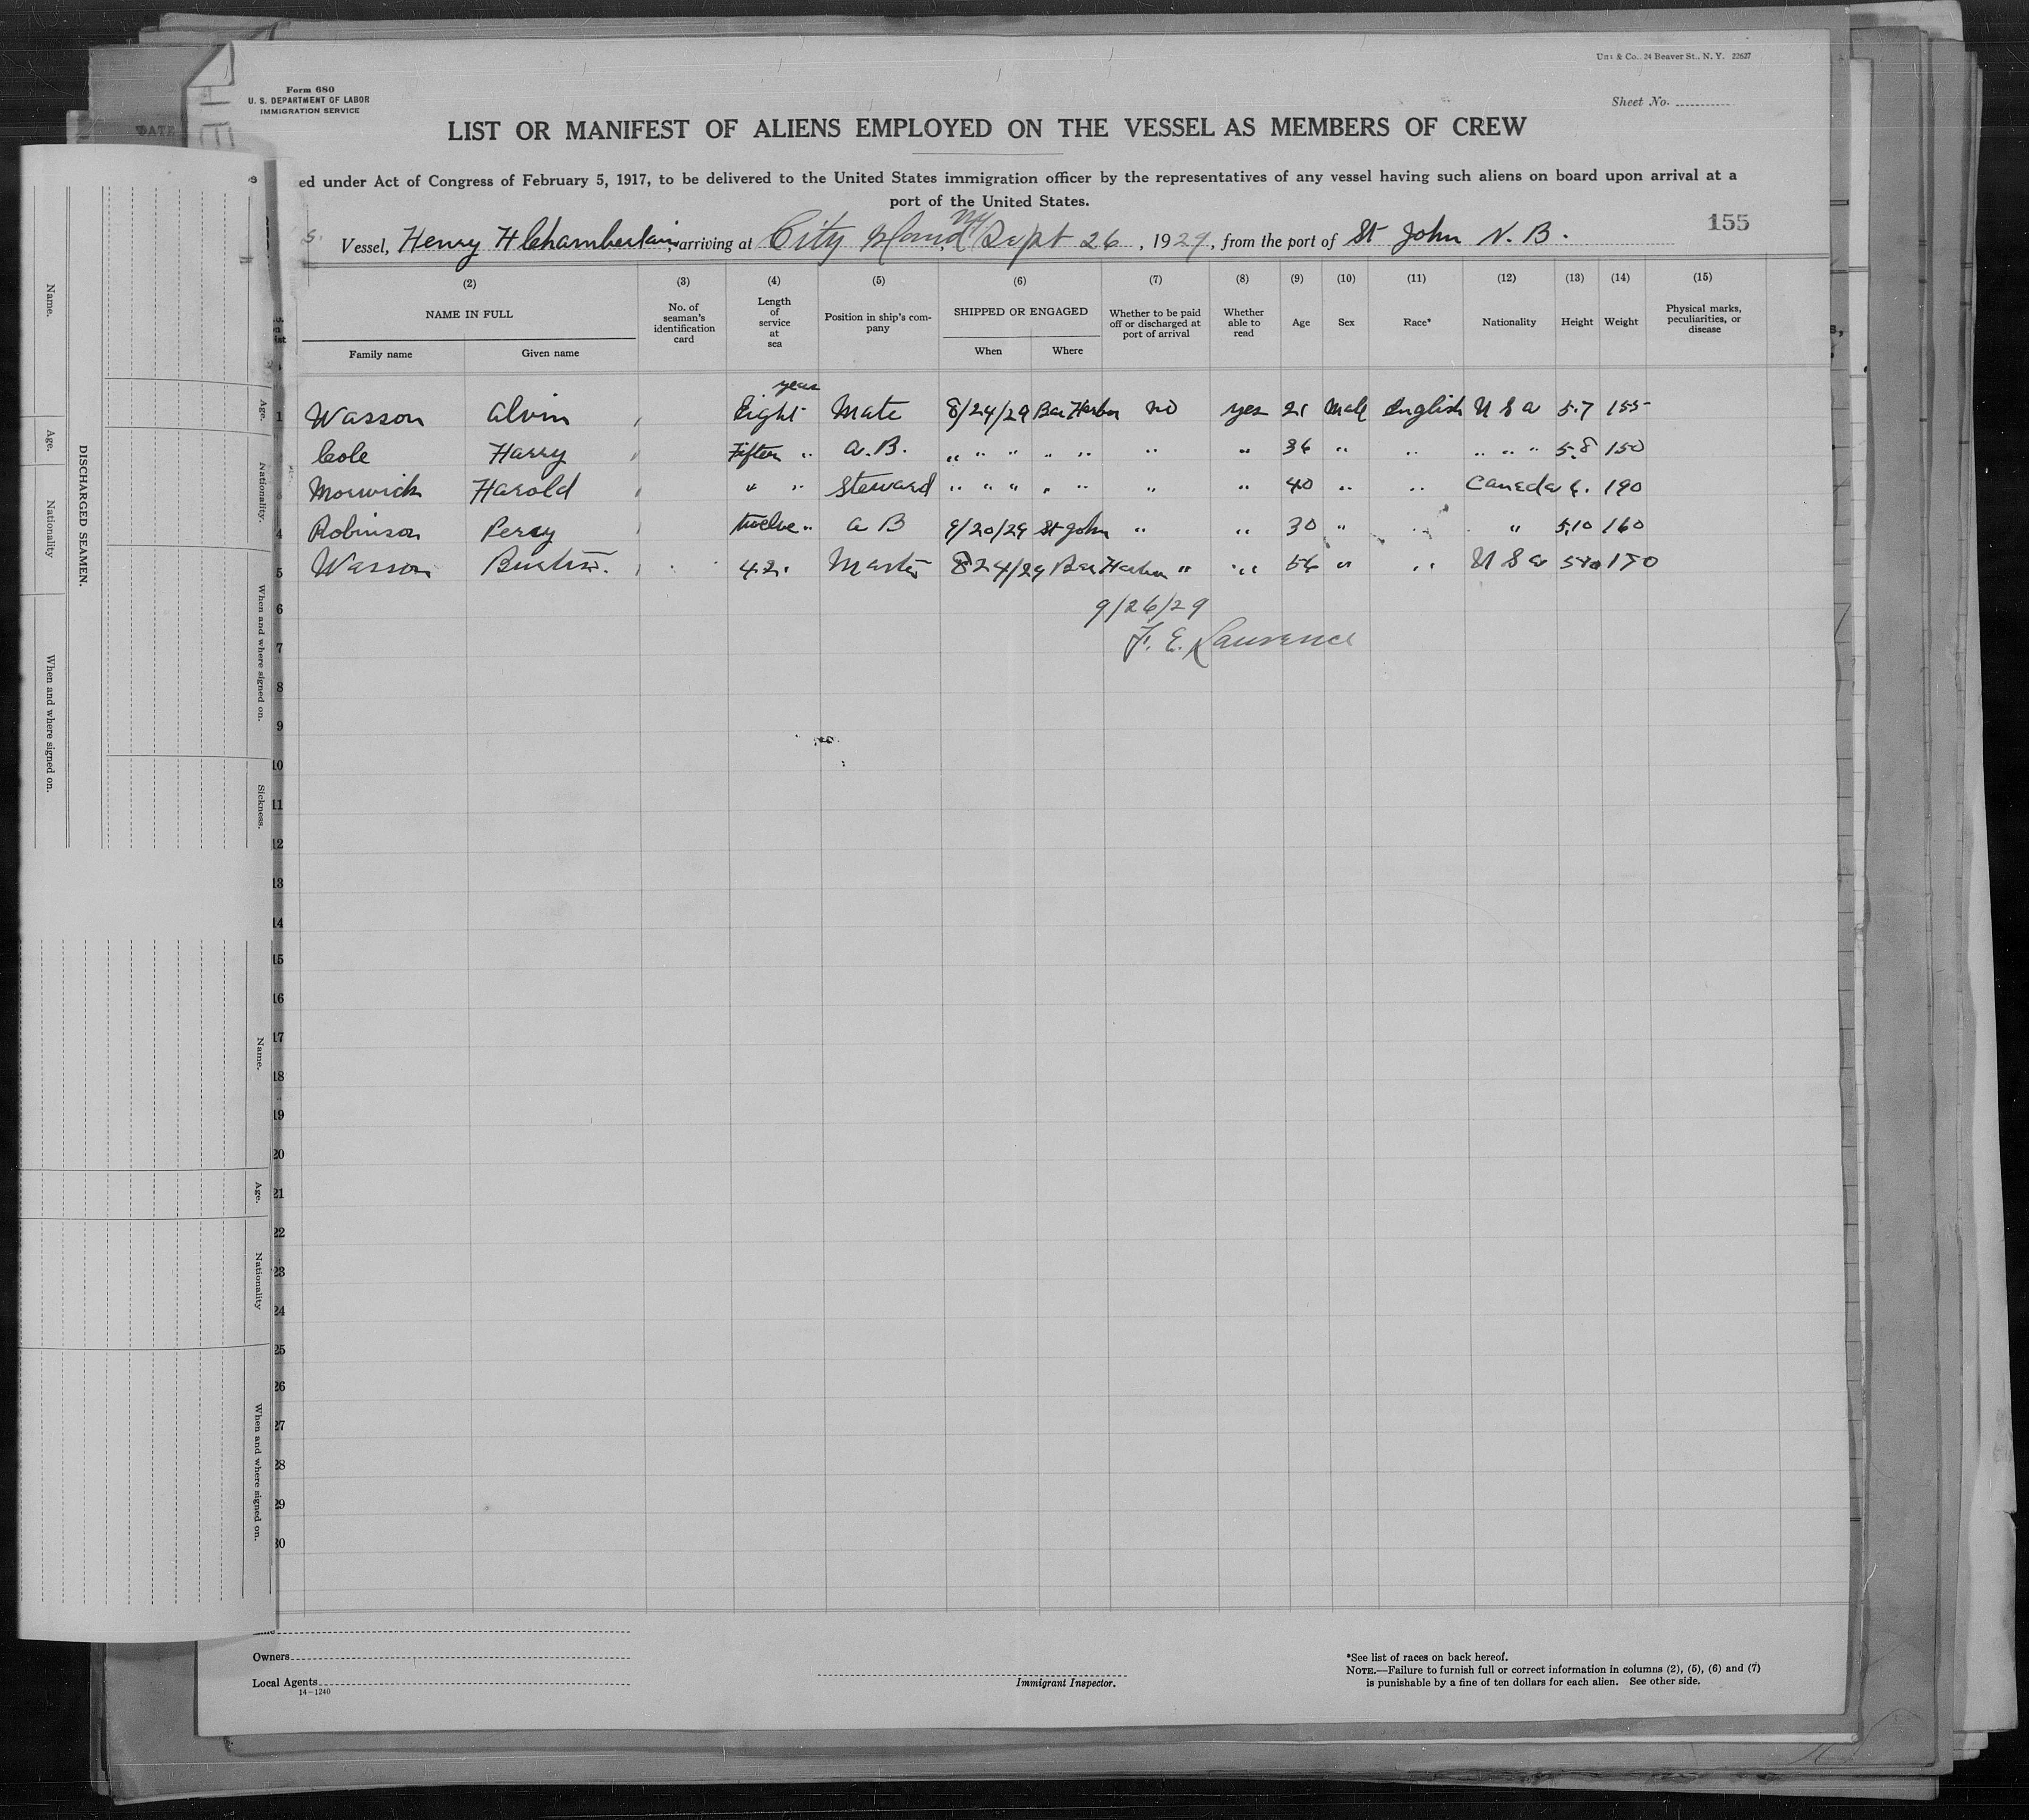 Uнz & Co., 24 Beaver St., N. Y. 22627
Form 680
U. S. DEPARTMENT OF LABOR
IMMIGRATION SERVICE
Sheet No.
LIST OR MANIFEST OF ALIENS EMPLOYED ON THE VESSEL AS MEMBERS OF CREW
ed under Act of Congress of February 5, 1917, to be delivered to the United States immigration officer by the representatives of any vessel having such aliens on board upon arrival at a
port of the United States.
155
S. Vessel, Henry H Chamberlain, arriving at City Island NY Sept 26, 1929, from the port of St John N. B.
(2) (3) (4) (5) (6) (7) (8) (9) (10) (11) (12) (13) (14) (15)
NAME IN FULL No. of seaman's identification card Length of service at sea Position in ship's company SHIPPED OR ENGAGED Whether to be paid off or discharged at port of arrival Whether able to read Age Sex Race* Nationality Height Weight Physical marks, peculiarities, or disease
Family name Given name When Where
years
1 Wasson Alvin Eight Mate 8/24/29 Bar Harbor no yes 21 Male English U S a 5.7 155
Cole Harry Fifteen " A. B. " " " " " " " 36 " " " " " 5.8 150
Morwick Harold " " Steward " " " " " " " 40 " " Canada 6. 190
4 Robinson Percy twelve " A B 9/20/29 St John " " 30 " " " 5.10 160
5 Wasson 42 Master 8 24/29 Bar Harbor " " 56 " " U S a 5 10 150
6 9/26/29
7 F. E. Laurence
8
9
10
11
12
13
14
15
16
17
18
19
20
21
22
23
24
25
26
27
28
29
30
Owners
Local Agents
14—1240
Immigrant Inspector.
*See list of races on back hereof.
NOTE.—Failure to furnish full or correct information in columns (2), (5), (6) and (7)
is punishable by a fine of ten dollars for each alien. See other side.
DISCHARGED SEAMEN.
Name.
Age.
Nationality
When and where signed on.
Age.
Nationality.
When and where signed on.
Sickness.
Name.
Age.
Nationality
When and where signed on.
DATE